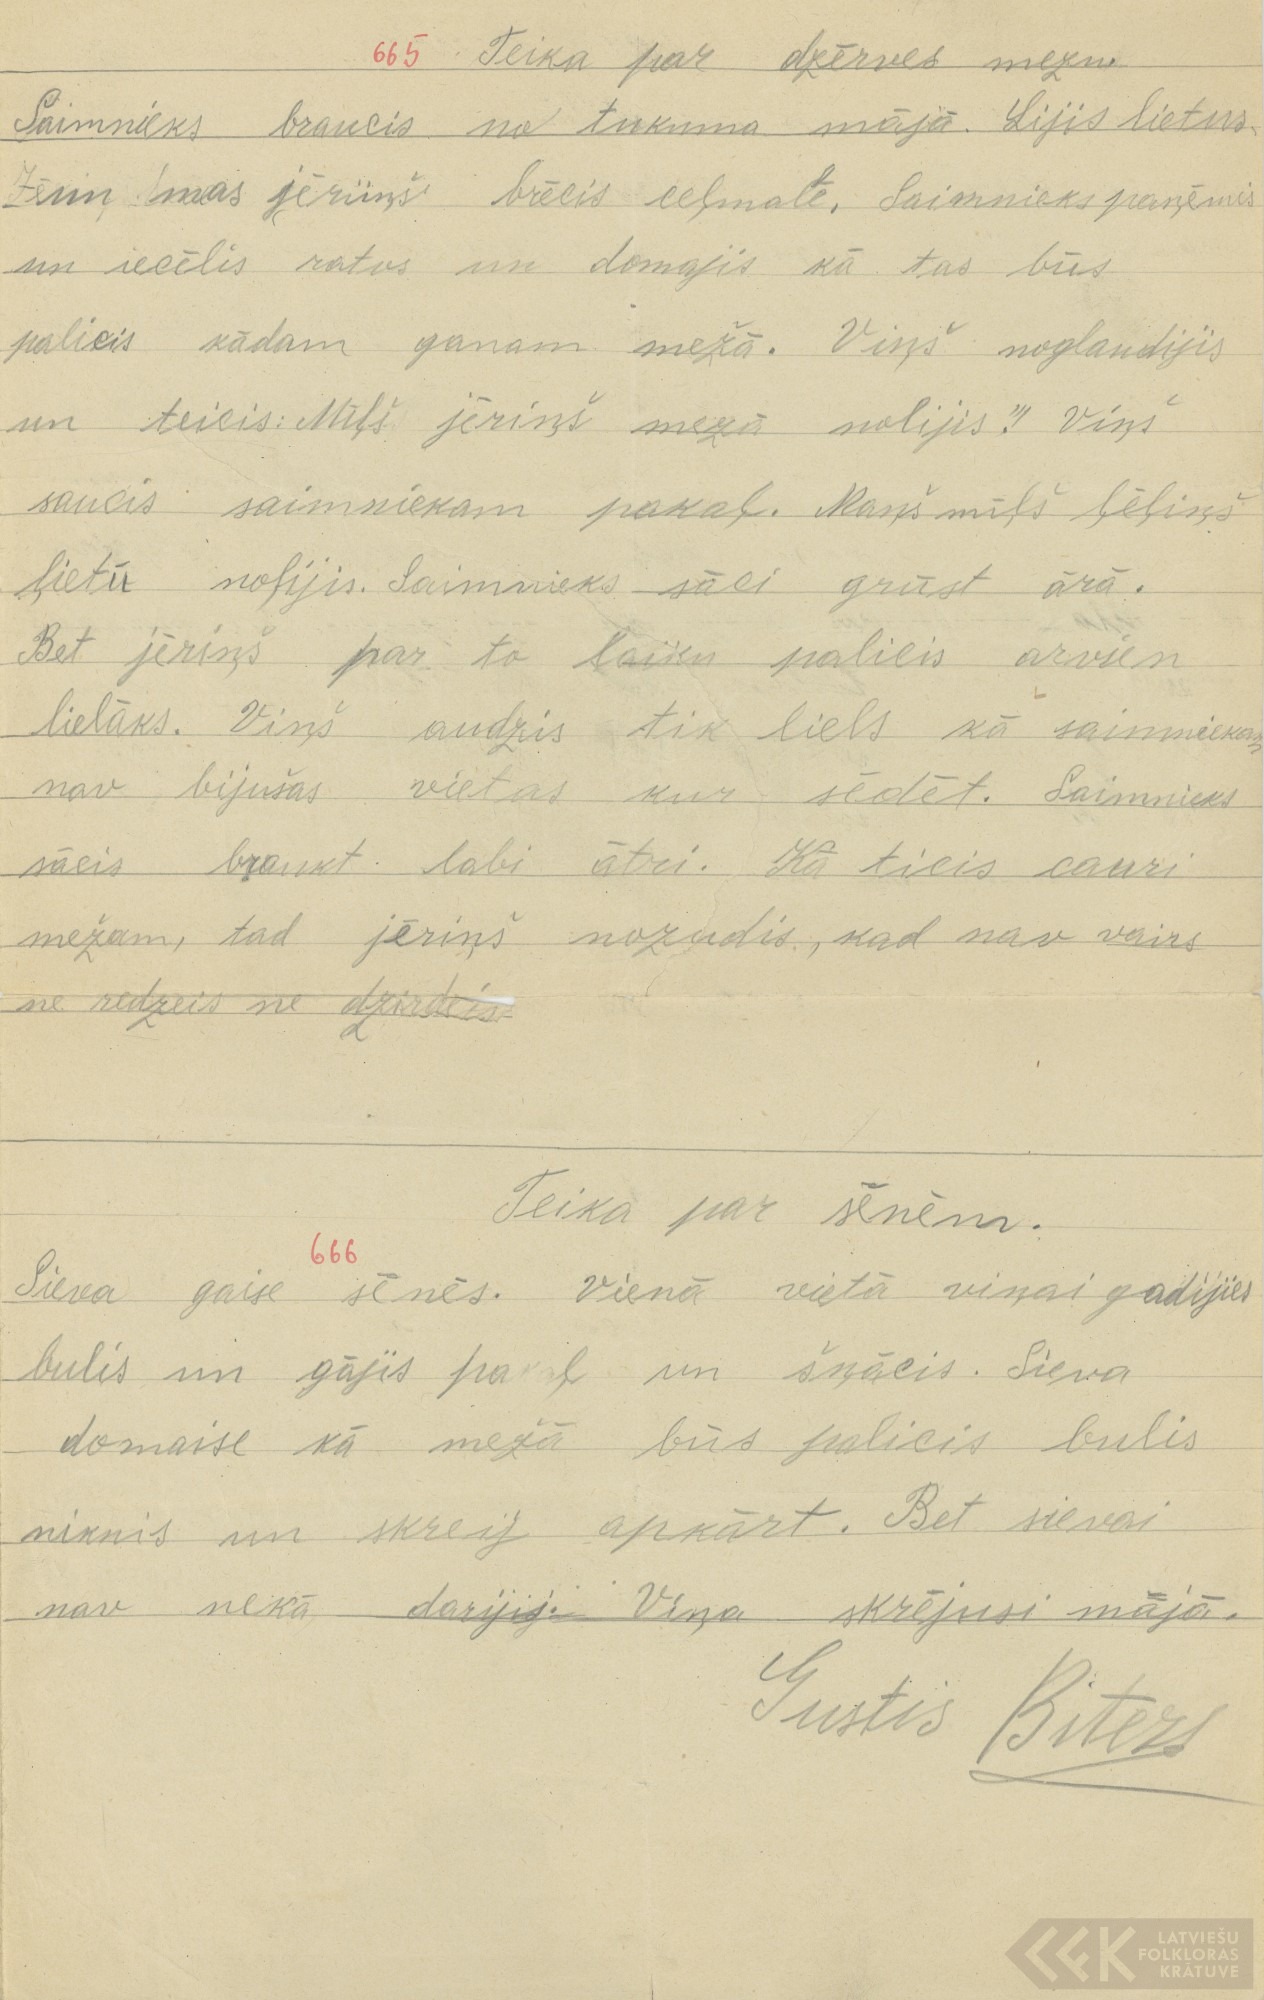 665 Teika par dzērves mezu.
Saimnieks braucis no tukuma mājā. Lijis lietus.
mas jēriņš brēcis ceļmalē. Saimnieks paņēmis
un iecēlis ratos un domajis kā tas būs
palicis kādam ganam mežā. Viņš noglaudijis
un teicis: Mīļš jēriņš mezā nolijis"! Viņš
saucis saimniekam pakaļ. Maņš mīļš ļēļiņš
ļietū noļijis. Saimnieks sāci grūst ārā.
Bet jēriņš par to laiku palicis arvien
lielāks. Viņš audzis tik liels kā saimniekam
nav bijušas vietas kur sēdēt. Saimnieks
sācis braukt labi ātri. Kā ticis cauri
mežam, tad jēriņš nozudis, kad nav vairs
ne redzeis ne dzirdeis
Teika par sēnēm.
666
Sieva gaise sēnēs. Vienā vietā viņai gadijies
bulis un gājis pakaļ un šņācis. Sieva
domaise kā mežā būs palicis bulis
niknis un skreij apkārt. Bet sievai
nav nekā darijij. Viņa skrējusi mājā.
Gustis Biters
LATVIEŠU
FOLKLORAS
KRĀTUVE